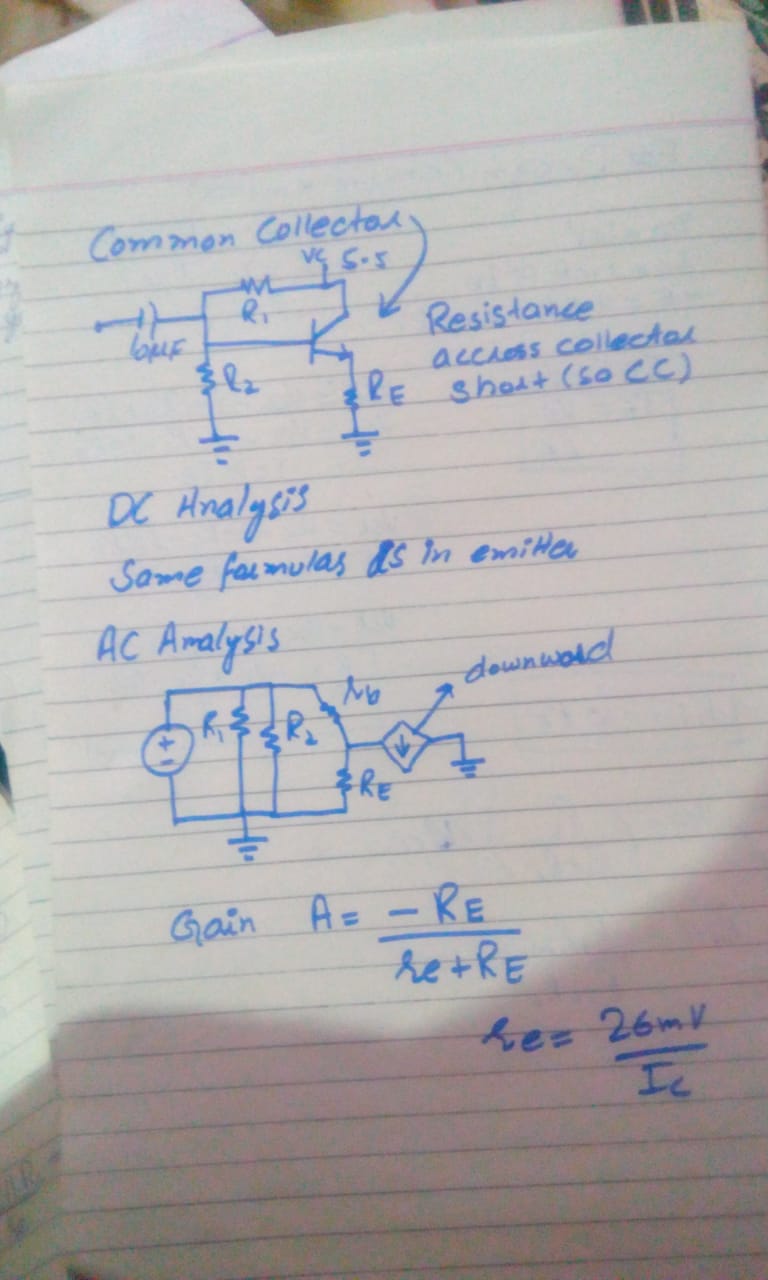 Common Collector
Vc 5.5
R1
10μF
R2
RE
Resistance
accross collector
short (so CC)
DC Analysis
Same formulas as in emitter
AC Analysis
downward
rb
R1
R2
RE
Gain A = - RE
re + RE
re = 26mV
Ic